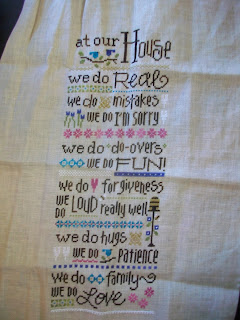 at our House
we do Real
we do mistakes
WE DO I'm SORRY
we do do-overs
WE DO FUN!
we do forgiveness
WE DO LOUD really well
we do hugs
WE DO PATIENCE
we do family
WE DO Love